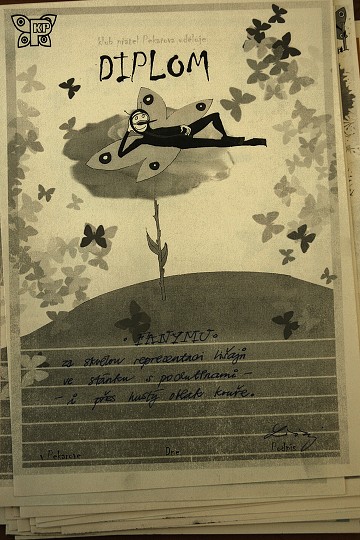 KP
Klub přátel Pekařova uděluje
DIPLOM
· FANYMU ·
za skvělou reprezentaci hřajů
ve stánku s pochutinami -
- i přes hustý oblak kouře.
v Pekařově Dne Podpis